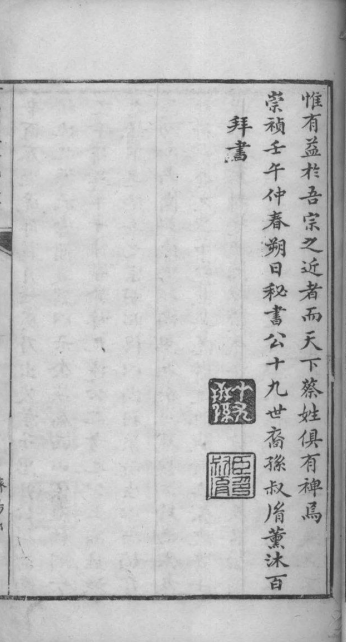 惟有益於吾宗之近者而天下蔡姓俱有裨焉
崇禎壬午仲春朔日秘書公十九世裔孫叔胤薰沐百
拜書